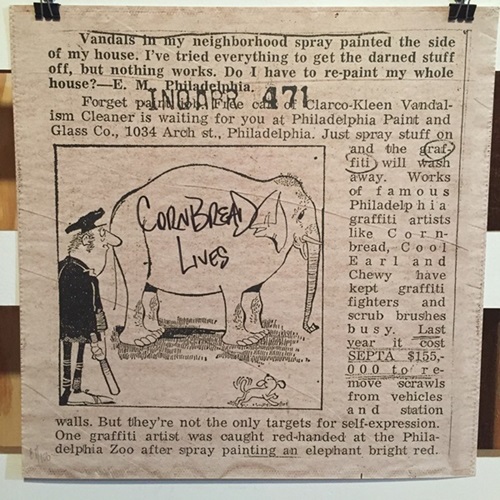 Vandals in my neighborhood spray painted the side
of my house. I've tried everything to get the darned stuff
off, but nothing works. Do I have to re-paint my whole
house?—E. M., Philadelphia.
Forget Free can of Clarco-Kleen Vandal-
471
ism Cleaner is waiting for you at Philadelphia Paint and
Glass Co., 1034 Arch st., Philadelphia. Just spray stuff on
and the graf-
fiti will wash
away. Works
of famous
Philadelphia
graffiti artists
like Corn-
bread, Cool
Earl and
Chewy have
kept graffiti
fighters and
scrub brushes
busy. Last
year it cost
SEPTA $155,-
000 to re-
move scrawls
from vehicles
and station
CORNBREAD
LIVES
walls. But they're not the only targets for self-expression.
One graffiti artist was caught red-handed at the Phila-
delphia Zoo after spray painting an elephant bright red.